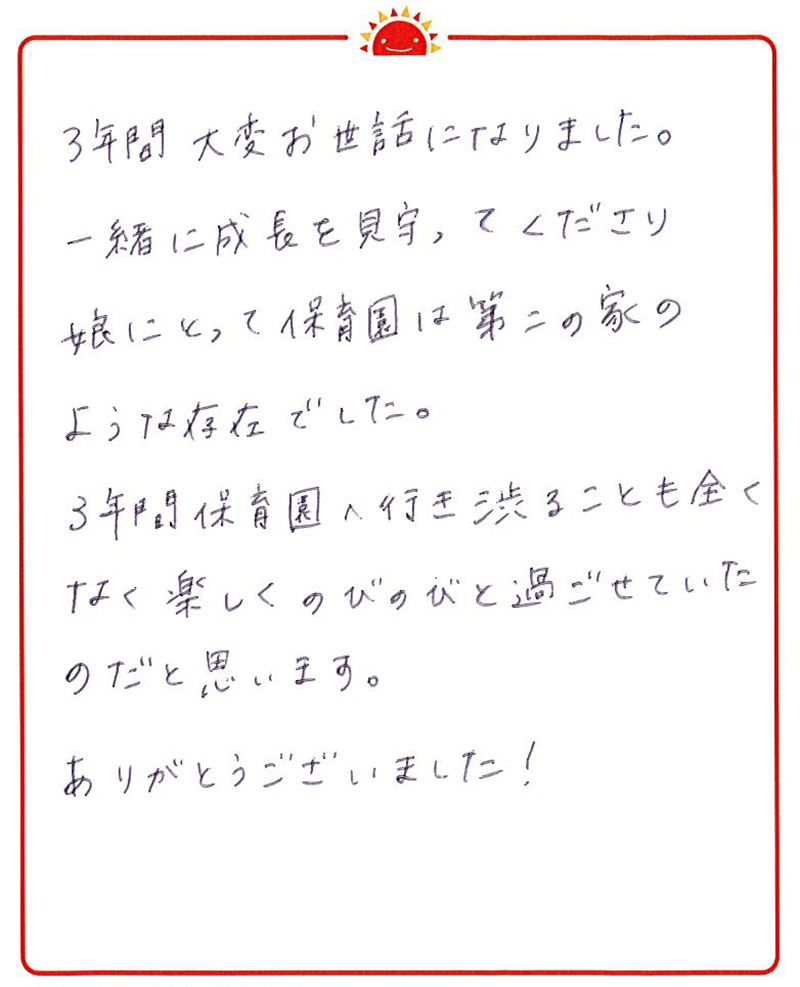 3年間 大変お世話になりました。
一緒に成長を見守ってくださり
娘にとって保育園は第二の家の
ような存在でした。
3年間保育園へ行き渋ることも全く
なく楽しくのびのびと過ごせていた
のだと思います。
ありがとうございました!